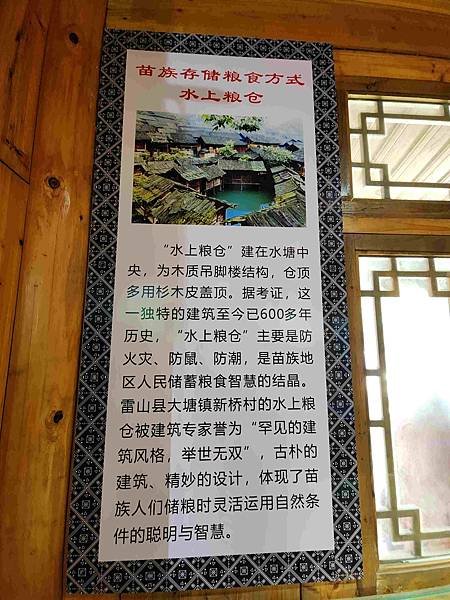 苗族存储粮食方式
水上粮仓
“水上粮仓”建在水塘中
央，为木质吊脚楼结构，仓顶
多用杉木皮盖顶。据考证，这
一独特的建筑至今已600多年
历史，“水上粮仓”主要是防
火灾、防鼠、防潮，是苗族地
区人民储蓄粮食智慧的结晶。
雷山县大塘镇新桥村的水上粮
仓被建筑专家誉为“罕见的建
筑风格，举世无双”，古朴的
建筑、精妙的设计，体现了苗
族人们储粮时灵活运用自然条
件的聪明与智慧。